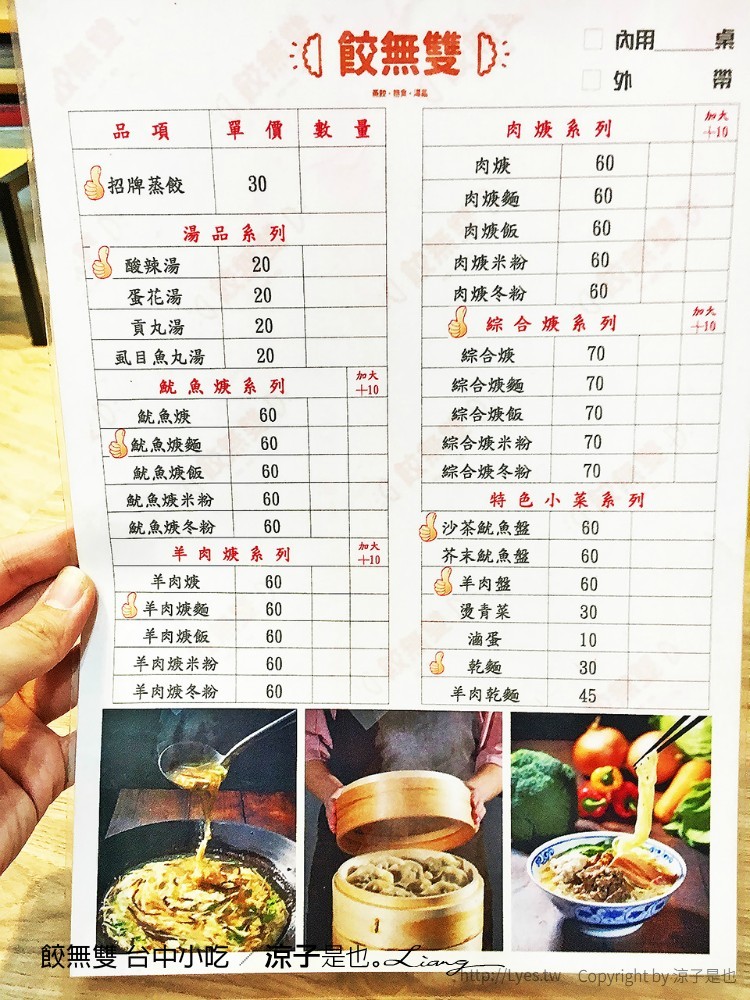 餃無雙
蒸餃·麵食·湯品
內用______桌
外帶
品項 單價 數量
招牌蒸餃 30
湯品系列
酸辣湯 20
蛋花湯 20
貢丸湯 20
虱目魚丸湯 20
魷魚焿系列 加大+10
魷魚焿 60
魷魚焿麵 60
魷魚焿飯 60
魷魚焿米粉 60
魷魚焿冬粉 60
羊肉焿系列 加大+10
羊肉焿 60
羊肉焿麵 60
羊肉焿飯 60
羊肉焿米粉 60
羊肉焿冬粉 60
肉焿系列 加大+10
肉焿 60
肉焿麵 60
肉焿飯 60
肉焿米粉 60
肉焿冬粉 60
綜合焿系列 加大+10
綜合焿 70
綜合焿麵 70
綜合焿飯 70
綜合焿米粉 70
綜合焿冬粉 70
特色小菜系列
沙茶魷魚盤 60
芥末魷魚盤 60
羊肉盤 60
燙青菜 30
滷蛋 10
乾麵 30
羊肉乾麵 45
餃無雙 台中小吃 / 涼子是也。Liang
http://Lyes.tw Copyright by 涼子是也